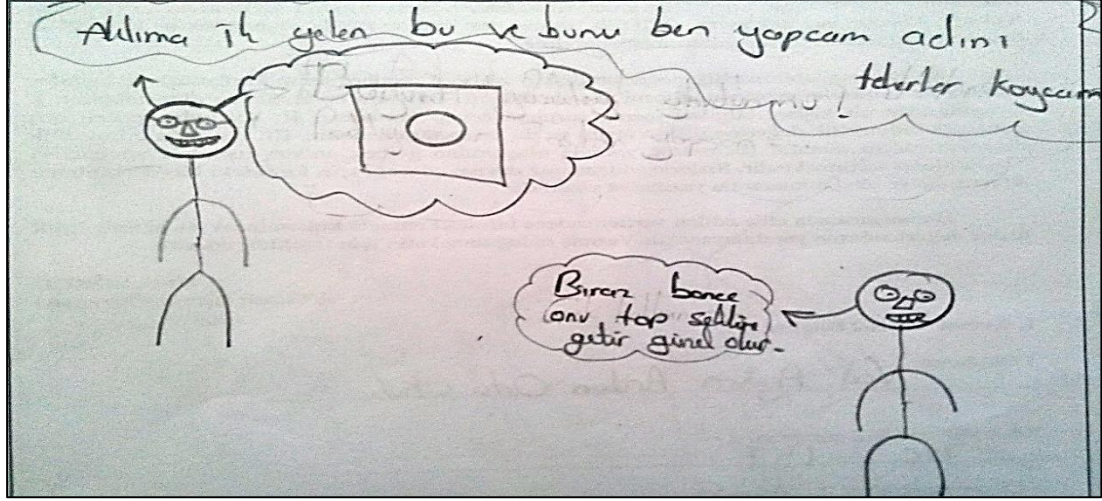 Aklıma ilk gelen bu ve bunu ben yapcam adını
koycam
Biraz bance
onu top şekline
getir güzel olur.